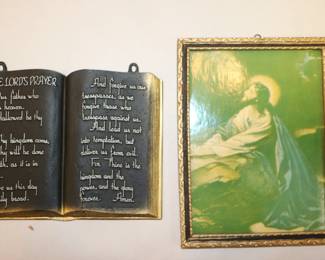 E LORD'S PRAYER
father who
heaven.
allowed be thy
hy kingdom come,
hy will be done
as it is in
us this day
bread.
And forgive us our
trespasses, as we
forgive those who
trespass against us.
And lead us not
into temptation, but
deliver us from evil.
For Thine is the
kingdom and the
power, and the glory
forever. Amen.